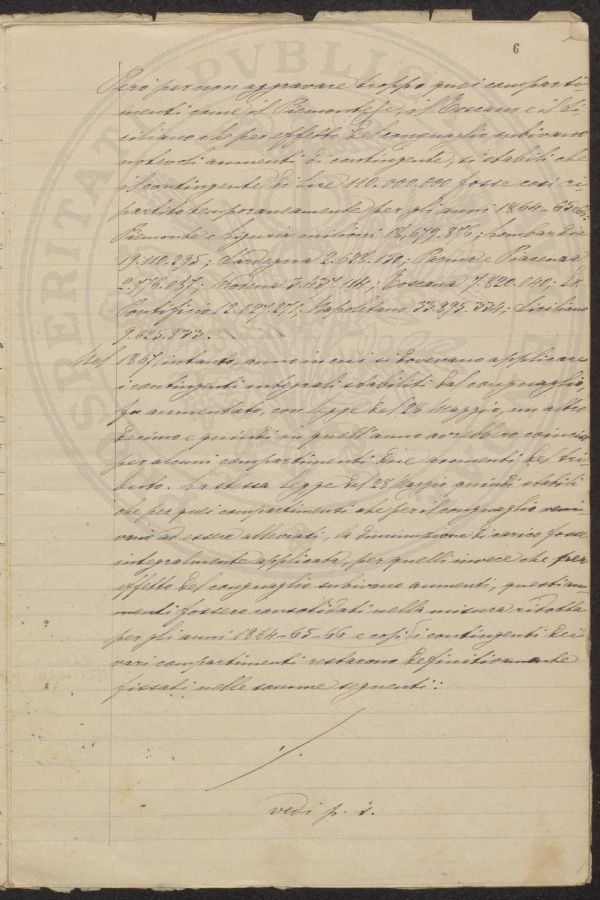 6
Però per non aggravare troppo quei comparti
menti come il Piemontese, il Toscano e il Si
ciliano che per effetto del conguaglio subivano
notevoli aumenti di contingente, si stabilì che
il contingente di lire 110.000.000 fosse così ri
partito temporaneamente per gli anni 1864-65-66:
Piemonte e Liguria milioni 18,679.876; Lombardia
19.110.295; Sardegna 2.622.150; Parma e Piacenza
2.776.037; Modena 3.137.114; Toscana 7.820.040; Ex
Pontificio 12.027.271; Napoletano 33.895.334; Siciliano
9.625.833.
Nel 1867, intanto, anno in cui si dovevano applicare
i contingenti integrali stabiliti dal conguaglio,
fu aumentato, con legge del 28 Maggio, un altro
decimo e quindi in quell'anno avrebbero coinciso
per alcuni compartimenti due aumenti del tri
buto. La stessa legge del 28 Maggio quindi stabilì
che per quei compartimenti che per il conguaglio veni
vano ad essere alleviati, la diminuzione di carico fosse
integralmente applicata, per quelli invece che per
effetto del conguaglio subivano aumenti, questi au
menti fossero consolidati nella misura ridotta
per gli anni 1864-65-66 e così i contingenti dei
vari compartimenti restarono definitivamente
fissati nelle somme seguenti:
./.
vedi p. s.
PVBLIC